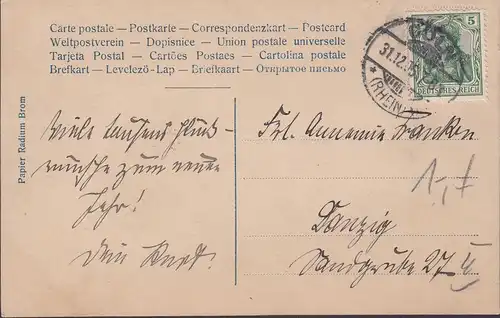 Carte postale — Postkarte — Correspondenzkart — Postcard
Weltpostverein — Dopisnice — Union postale universelle
Tarjeta Postal — Cartões Postaes — Cartolina postale
Brefkart — Levelező-Lap — Briefkaart — Открытое письмо
5
DEUTSCHES REICH
31.12.
(RHEIN)
Papier Radium Brom
Viele tausend Glück-
wünsche zum neuen
Jahr!
Dein Kurt.
Frl. Annemie Franken
Danzig
Sandgrube 27